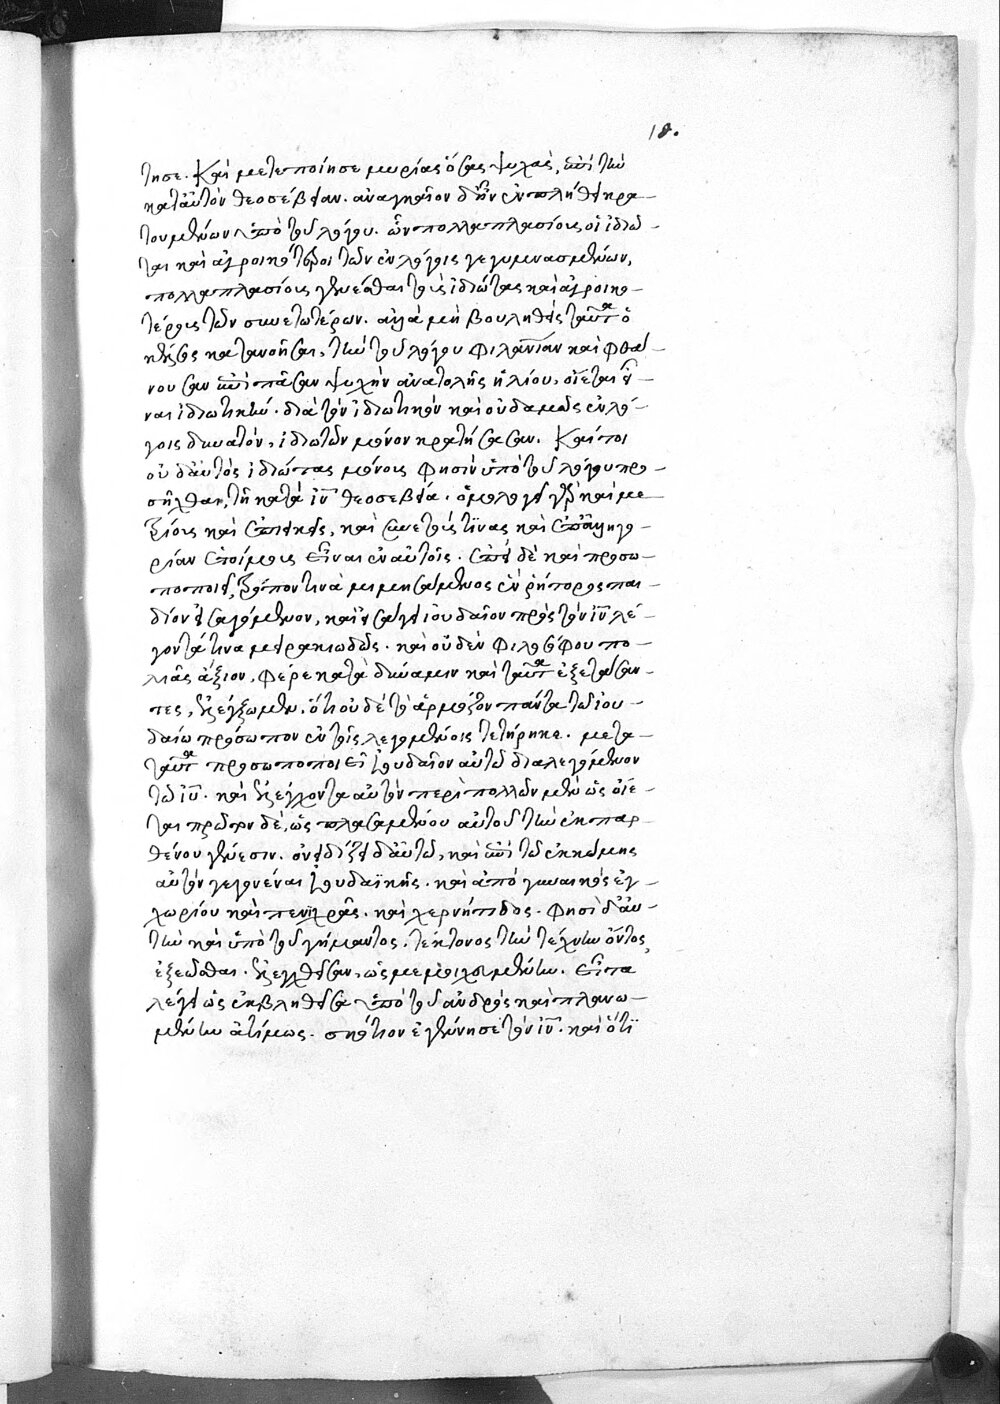 18.
τησε. Καὶ μετεποίησε μυρίας ὅσας ψυχὰς, ἐπὶ τὴν
κατ' αὐτὸν θεοσέβειαν. ἀναγκαῖον δ' ἦν ἐν πλήθει κρα-
τουμένων ὑπὸ τοῦ λόγου. ὧν πολλαπλασίους οἱ ἰδιῶ-
ται καὶ ἀγροικότεροι τῶν ἐν λόγοις γεγυμνασμένων,
πολλαπλασίους γενέσθαι τοὺς ἰδιώτας καὶ ἀγροικο-
τέρους τῶν συνετωτέρων. ἀλλὰ μὴ βουληθεὶς ταῦτα ὁ
κέλσος κατανοῆσαι, τὴν τοῦ λόγου φιλανίαν καὶ φθά-
νουσαν ἐπὶ πᾶσαν ψυχὴν ἀνατολῆς ἡλίου, οἴεται εἶ-
ναι ἰδιωτικήν. διὰ τὸν ἰδιωτικὸν καὶ οὐδαμῶς ἐν λό-
γοις δυνατὸν, ἰδιωτῶν μόνον κρατήσασαν. Καίτοι
οὐδ' αὐτὸς ἰδιώτας μόνους φησὶν ὑπὸ τοῦ λόγου προ-
σῆχθαι, τῇ κατὰ ἰῦ θεοσεβείᾳ. ὁμολογεῖ γὰρ καὶ με-
τρίους καὶ ἐπιεικεῖς, καὶ συνετούς τινας καὶ ἐπ' ἀλληγο-
ρίαν ἑτοίμους εἶναι ἐν αὐτοῖς. ἐπεὶ δὲ καὶ προσω-
ποποιεῖ, τρόπον τινὰ μιμησάμενος ἐν ῥήτορος παι-
δίον εἰσαγόμενον, καὶ εἰσάγει ἰουδαῖον πρὸς τὸν ἰῦ λέ-
γοντά τινα μειρακιωδῶς. καὶ οὐδὲν φιλοσόφου πο-
λιᾶς ἄξιον, φέρε κατὰ δύναμιν καὶ ταῦτα ἐξετάσαν-
τες, ἐξελέγξωμεν. ὅτι οὐδὲ τὸ ἁρμόζον πάντα τῷ ἰου-
δαίῳ πρόσωπον ἐν τοῖς λεγομένοις τετήρηκε. μετὰ
ταῦτα προσωποποιεῖ ἰουδαῖον αὐτῷ διαλεγόμενον
τῷ ἰῦ. καὶ ἐλέγχοντα αὐτὸν περὶ πολλῶν μὲν ὡς οἴε-
ται πρῶτον δὲ, ὡς πλασαμένου αὐτοῦ τὴν ἐκ παρ-
θένου γένεσιν. ὀνειδίζει δ' αὐτῷ, καὶ ἐπὶ τῷ ἐκ κώμης
αὐτὸν γεγονέναι ἰουδαϊκῆς. καὶ ἀπὸ γυναικὸς ἐγ-
χωρίου καὶ πενιχρᾶς. καὶ χερνήτιδος. φησὶ δ' αὐ-
τὴν καὶ ὑπὸ τοῦ γήμαντος, τέκτονος τὴν τέχνην ὄντος,
ἐξεῶσθαι. ἐλεγχθεῖσαν, ὡς μεμοιχευμένην. εἶτα
λέγει ὡς ἐκβληθεῖσα ὑπὸ τοῦ ἀνδρὸς καὶ πλανω-
μένη ἀτίμως. σκότιον ἐγέννησε τὸν ἰῦ. καὶ ὅτι